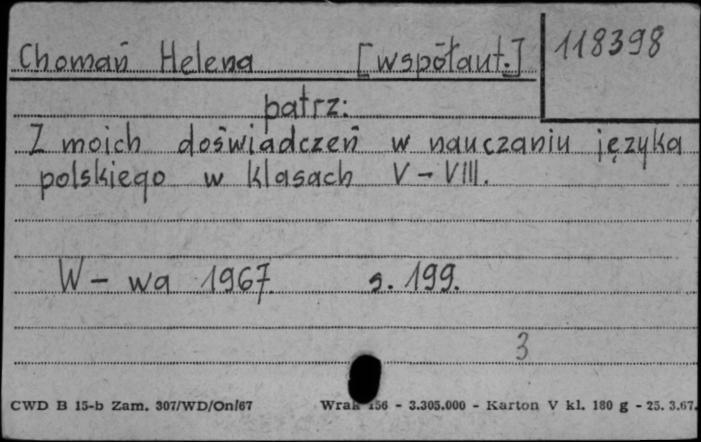 Chomań Helena [współaut.] 118398
patrz:
Z moich doświadczeń w nauczaniu języka
polskiego w klasach V-VIII.
W-wa 1967 s. 199.
3
CWD B 15-b Zam. 307/WD/On/67 - 3.305.000 - Karton V kl. 180 g - 25. 3.67.